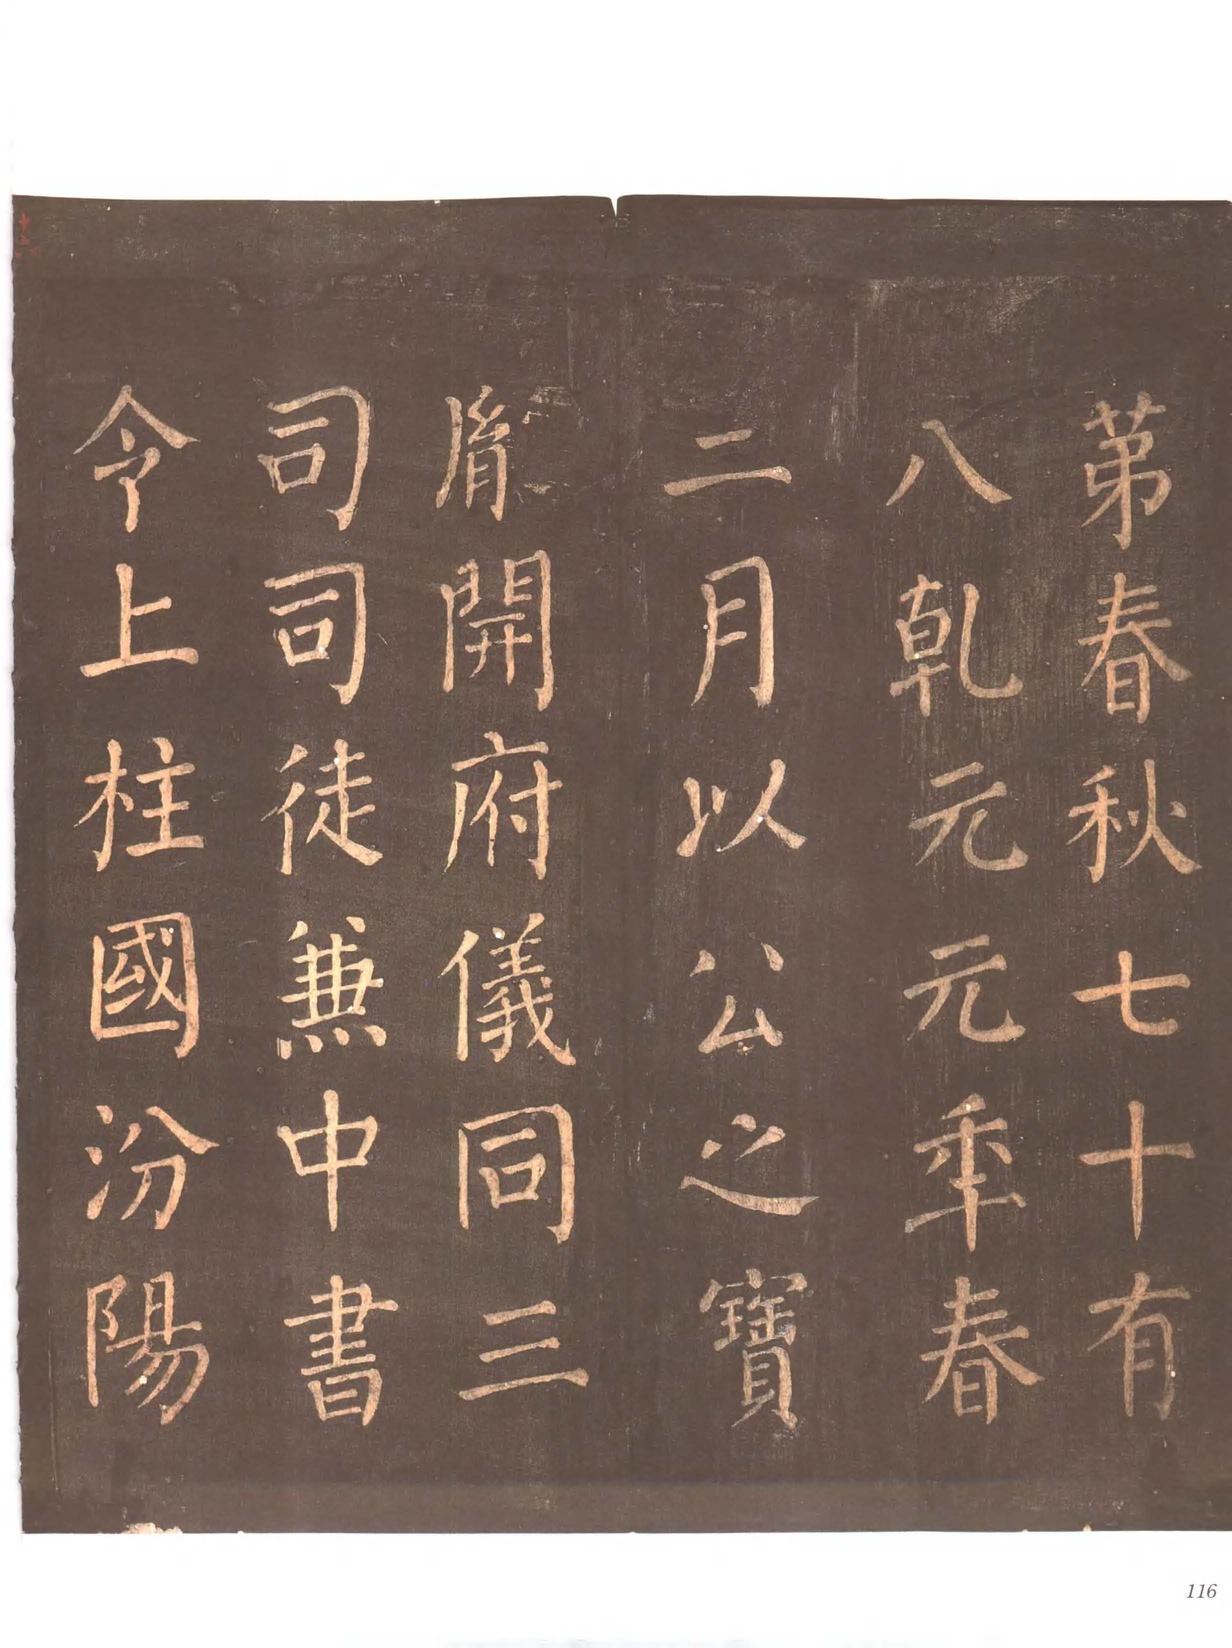 苐春秋七十有
八乾元元年春
二月以公之寶
胤開府儀同三
司司徒兼中書
令上柱國汾陽
116